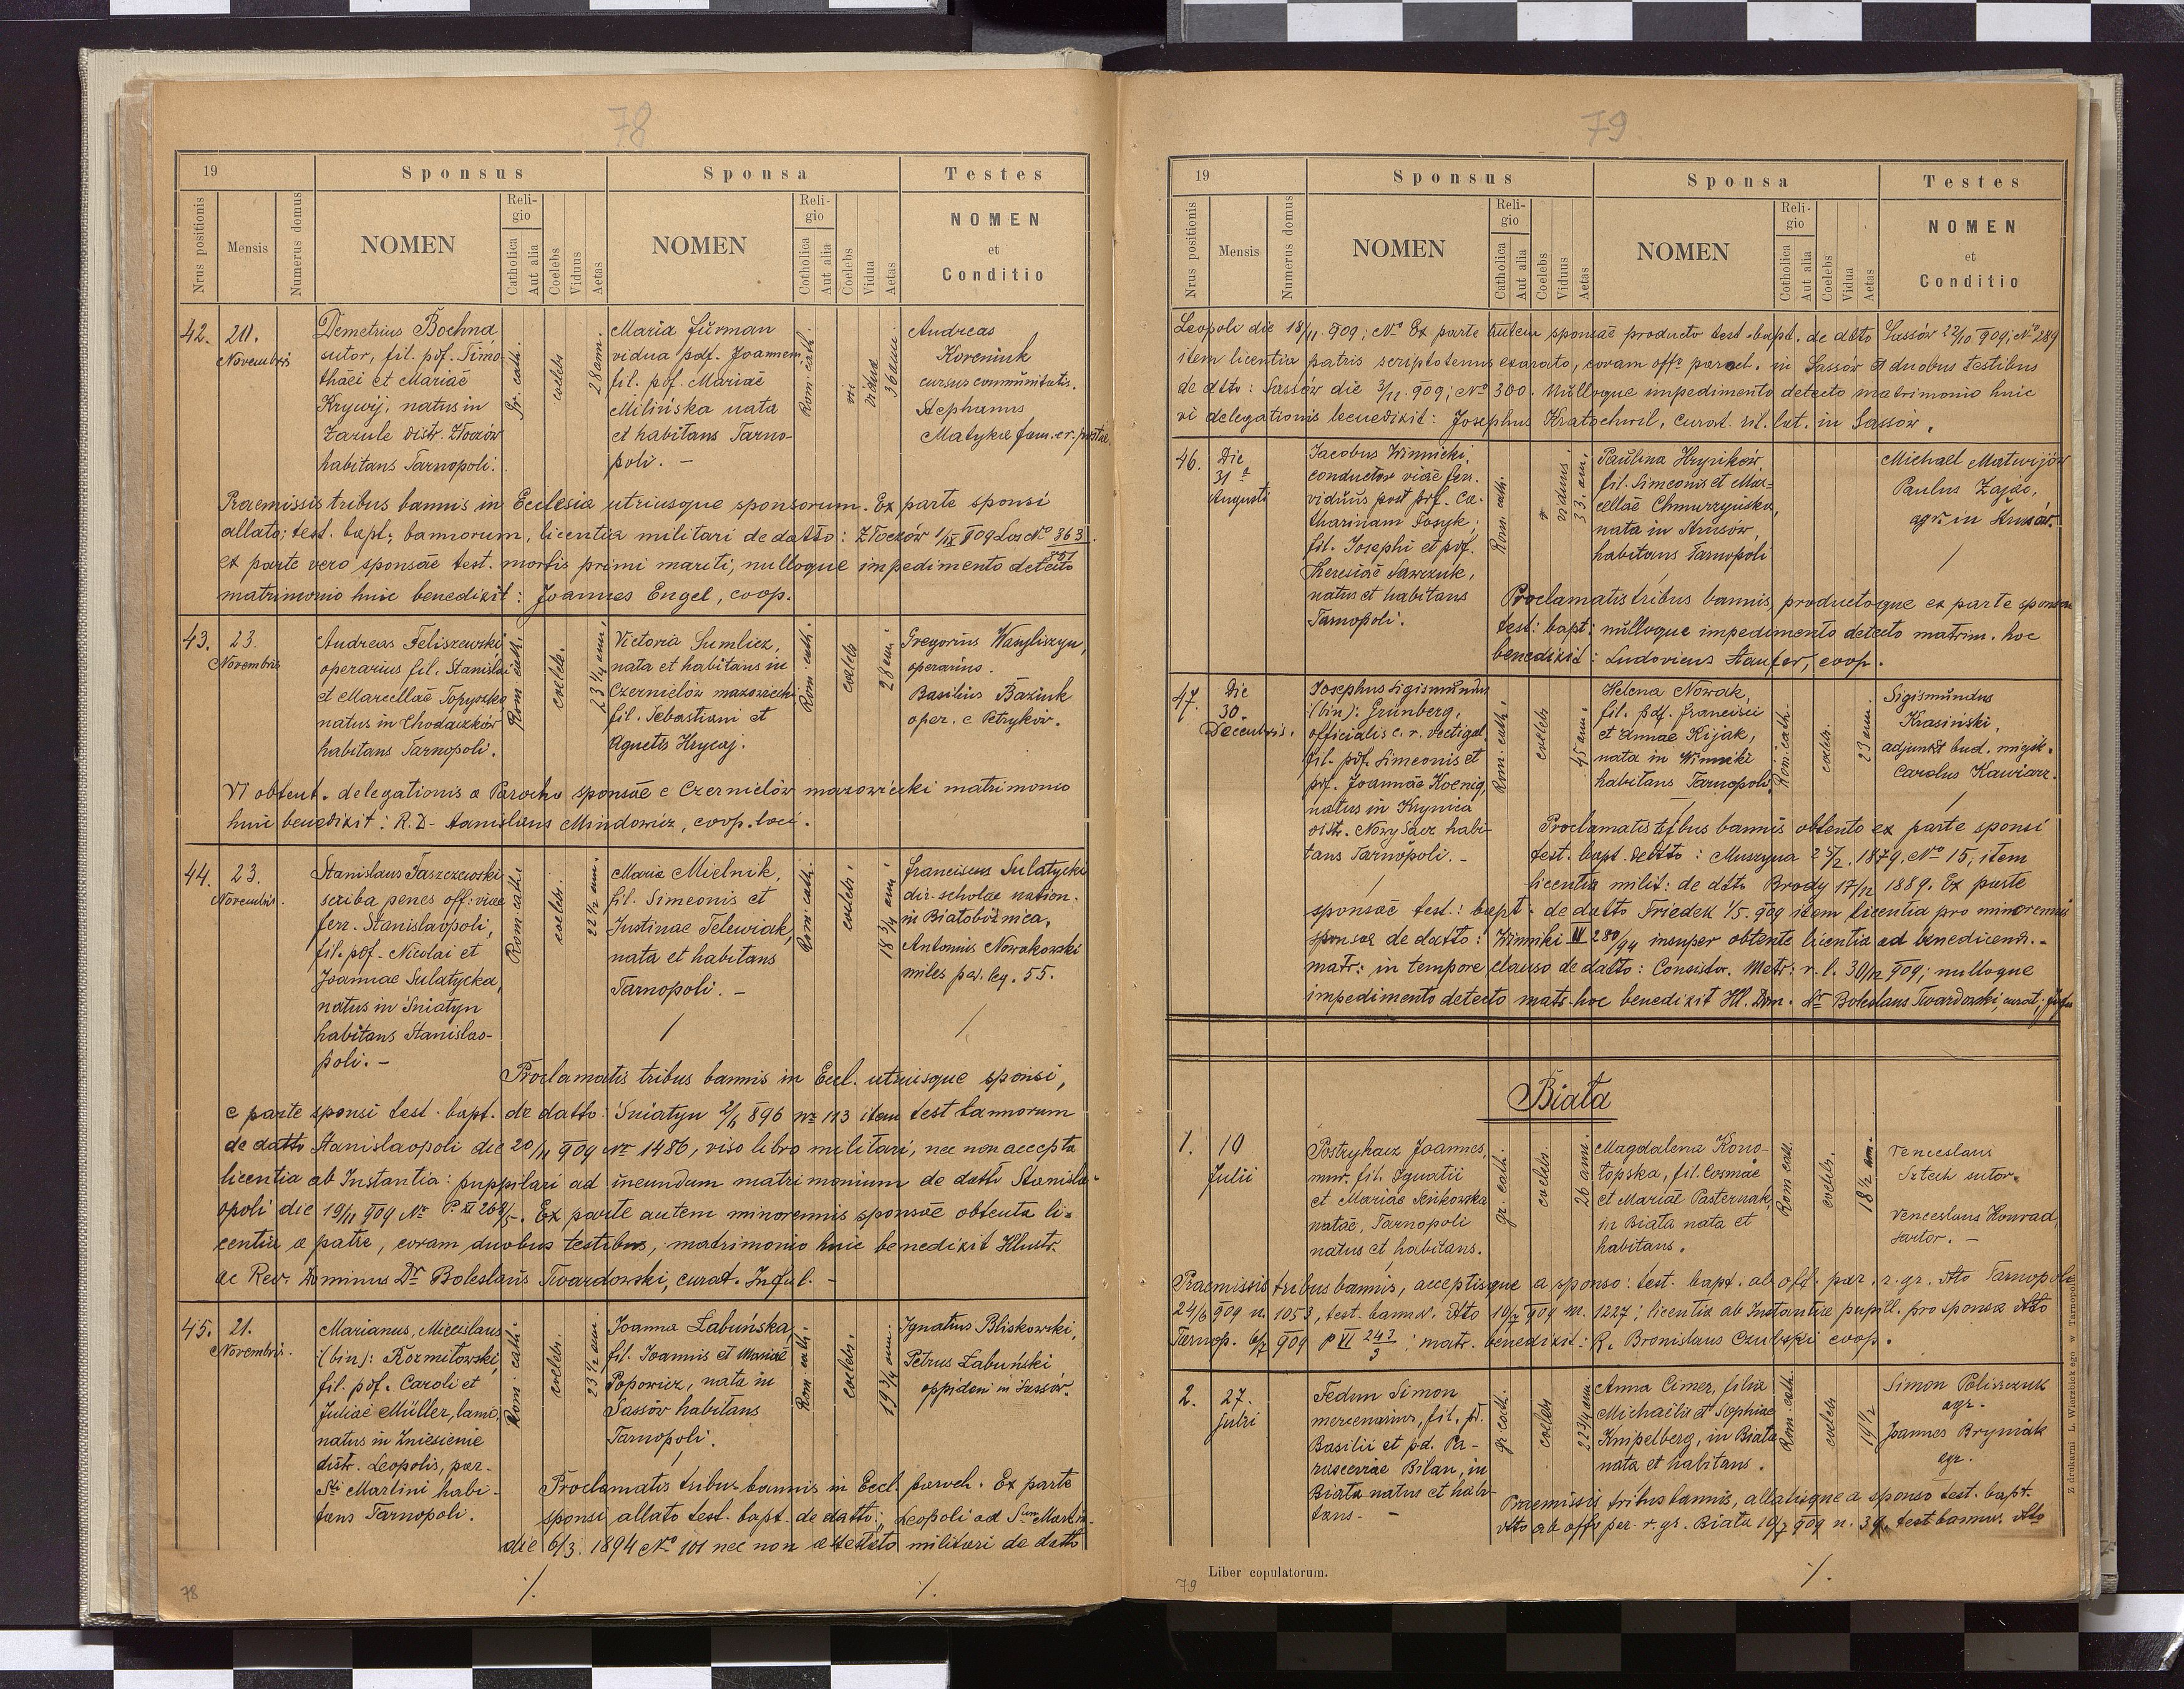 78
19
Sponsus
Sponsa
Testes
Nrus positionis
Mensis
Numerus domus
NOMEN
Reli-
gio
Catholica
Aut alia
Coelebs
Viduus
Aetas
NOMEN
Reli-
gio
Catholica
Aut alia
Coelebs
Vidua
Aetas
NOMEN
et
Conditio
42.
Novembris
Demetrius Bochna,
sutor, fil. pdf. Timo-
thaei et Mariae
Krywyj, natus in
Zazule distr. Złoczów
habitans Tarnopoli.
Gr. cath.
coelebs
28 ann.
Maria Furman
vidua pdf. Joannem
fil. pdf. Mariae
Milińska nata
et habitans Tarno-
poli. -
Rom. cath.
vidua
36 ann.
Andreas
Koreniuk
cursor communitatis.
Stephanus
Matykie fam. c. r. postae.
Praemissis tribus bannis in Ecclesia utriusque sponsorum. Ex parte sponsi
allato; test. bapt., bannorum, licentia militari de datto: Złoczów 1/IX 909 Los No 363
851
ex parte vero sponsae test. mortis primi mariti, nulloque impedimento detecto
matrimonio huic benedixit: Joannes Engel, coop.
43.
23.
Novembris
Andreas Feliszewski
operarius fil. Stanislai
et Marcellae Topyszko
natus in Chodaczków
habitans Tarnopoli.
Rom. cath.
coelebs.
23 1/4 ann.
Victoria Sumlicz,
nata et habitans in
Czernielów mazowiecki
fil. Sebastiani et
Agnetis Hrycaj.
Rom. cath.
coelebs
28 ann.
Gregorius Wasyliszyn,
operarius.
Basilius Baziuk
oper. e Petryków.
Vi obtent. delegationis a Parocho sponsae e Czernielów mazowiecki matrimonio
huic benedixit: R. D. Stanislaus Mindowicz, coop. loci.
44.
23.
Novembris.
Stanislaus Taszczewski
scriba penes off: viae
ferr. Stanislaopoli,
fil. pdf. Nicolai et
Joannae Sulatycka,
natus in Śniatyn
habitans Stanislao-
poli. -
Rom. cath.
coelebs.
22 1/2 ann.
Maria Mielnik,
fil. Simeonis et
Justinae Telewiak,
nata et habitans
Tarnopoli. -
Rom. cath.
coelebs.
18 3/4 ann
Franciscus Sulatycki
dir. scholae nation.
in Białobóżnica,
Antonius Nowakowski
miles ped. leg. 55.
Proclamatis tribus bannis in Eccl. utriusque sponsi,
e parte sponsi test. bapt. de datto: Śniatyn 2/6 896 Nr 113 item test bannorum
de datto Stanislaopoli die 20/11 909 Nr 1486, viso libro militari, nec non accepta
licentia ab Instantia: puppilari ad ineundum matrimonium de datto Stanisla-
opoli die 19/11 909 Nr P. XI 268/5. Ex parte autem minorennis sponsae obtenta li-
centia a patre, coram duobus testibus, matrimonio huic benedixit Illustr.
ac Rev. Dominus Dr Boleslaus Twardowski, curat. Inful. -
45.
21.
Novembris.
Marianus, Miecislaus
(bin): Rozmiłowski,
fil. pdf. Caroli et
Juliae Müller, lanio,
natus in Zniesienie
distr. Leopolis, par.
Sti Martini habi-
tans Tarnopoli.
Rom. cath.
coelebs.
23 1/2 ann.
Joanna Łabuńska,
fil. Joannis et Mariae
Popowicz, nata in
Sassów habitans
Tarnopoli.
Rom. cath.
coelebs.
19 3/4 ann.
Ignatius Bliskowski,
Petrus Łabuński
oppidani in Sassów.
Proclamatis tribus bannis in Eccl. paroch. Ex parte
sponsi allato test. bapt. de datto: Leopoli ad Sum Martin.
die 6/3. 1894 No 101 nec non attestato militari de datto
·/.
·/.
78
79
19
Sponsus
Sponsa
Testes
Nrus positionis
Mensis
Numerus domus
NOMEN
Reli-
gio
Catholica
Aut alia
Coelebs
Viduus
Aetas
NOMEN
Reli-
gio
Catholica
Aut alia
Coelebs
Vidua
Aetas
NOMEN
et
Conditio
Leopoli die 18/11 909; No Ex parte autem sponsae producto test. bapt. de dtto Sassów 22/10 909; No 289
item licentia patris scriptotenus exarato, coram offo paroch. in Sassów et duobus testibus
de dtto: Sassów die 3/11. 909; No 300. Nulloque impedimento detecto matrimonio huic
vi delegationis benedixit: Josephus Kratochwil, curat. rit. lat. in Sassów.
46.
Die
31a
Augusti
Jacobus Winnicki,
conductor viae fer.
viduus post pdf. Ca-
tharinam Tosyk;
fil. Josephi et pdf.
Theresiae Sawczuk,
natus et habitans
Tarnopoli.
Rom. cath.
viduus.
33. an.
Paulina Hrynków,
fil. Simeonis et Mar-
cellae Chmurzyńska,
nata in Strusów,
habitans Tarnopoli
Michael Matwijów
Paulus Zając,
agr. in Strusów.
Proclamatis tribus bannis, productoque ex parte sponsae
test: bapt: nulloque impedimento detecto matrim. hoc
benedixit: Ludovicus Staufer, coop.
47.
Die
30.
Decembris.
Josephus Sigismundus
(bin): Grünberg,
officialis c. r. vectigal.
fil. pdf. Simeonis et
pdf. Joannae Koenig,
natus in Krynica
distr. Nowy Sącz habi-
tans Tarnopoli. -
Rom. cath.
coelebs
45 ann.
Helena Nowak,
fil. pdf. Francisci
et Annae Kijak,
nata in Winniki
habitans Tarnopoli
Rom. cath.
coelebs.
23 ann.
Sigismundus
Krasiński,
adjunkt bud. miejsk.
Carolus Kawiarz.
Proclamatis tribus bannis obtento ex parte sponsi
test. bapt. de dtto: Muszyna 25/2. 1879. No 15, item
licentia milit: de dtto Brody 17/12 1889. Ex parte
sponsae test.: bapt: de datto Friedek 1/5. 909 item licentia pro minorennis
sponsae de datto: Winniki III 280/94 insuper obtente licentia ad benedicend.-
matr: in tempore clauso de datto: Consistor. Metr: r. l. 30/12 909; nulloque
impedimento detecto matr. hoc benedixit Ill. Dom. Dr Boleslaus Twardowski, curat;
Biała
1.
10
Julii
Postryhacz Joannes,
mur. fil. Ignatii
et Mariae Sieńkowska
natae, Tarnopoli
natus et habitans.
gr. cath.
coelebs.
26 ann.
Magdalena Kono-
topska, fil. Cosmae
et Mariae Pasternak,
in Biała nata et
habitans.
Rom cath.
coelebs.
18 1/2 ann.
Venceslaus
Sztech sutor.
Venceslaus Konrad,
sartor. -
Praemissis tribus bannis, acceptisque a sponso: test. bapt. ab off. par. r. gr. dto Tarnopoli
24/6 909 n. 1053, test. bannor. dto 10/7 909 n. 1227; licentia ab Instantiae pupill. pro sponsa dto
Tarnop. 6/7 909 P VI 243/3: matr. benedixit: R. Bronislaus Czubski coop.
2.
27.
Julii
Fedun Simon
mercenarius, fil. pd.
Basilii et pd. Pa-
rasceviae Bilan, in
Biała natus et habi-
tans. -
gr cath.
coelebs
22 3/4 ann.
Anna Cimer, filia
Michaelis et Sophiae
Knipelberg, in Biała
nata et habitans.
Rom. cath.
coelebs
19 1/2
Simon Poliszczuk
agr.
Joannes Bryniak
agr.
Praemissis tribus bannis, allatisque a sponso test. bapt.
dto ab offo par. r. gr. Biała 10/7 909 n. 39, test bannor. dto
Z drukarni L. Wierzbickiego w Tarnopolu
Liber copulatorum.
79
·/.